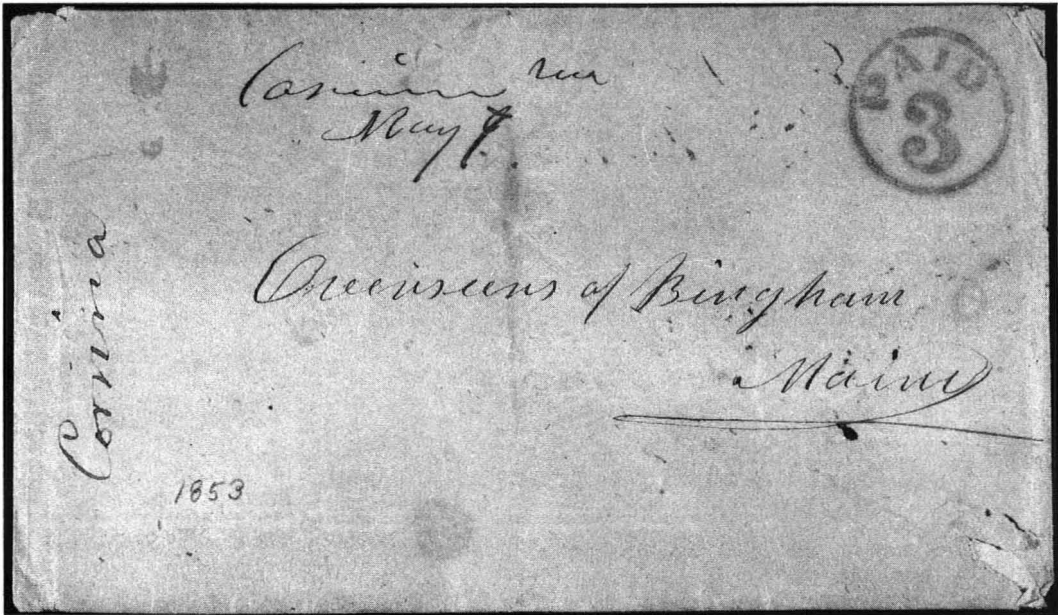 Corinna Me
May 7
PAID
3
Overseers of Bingham
Maine
Corinna
1853